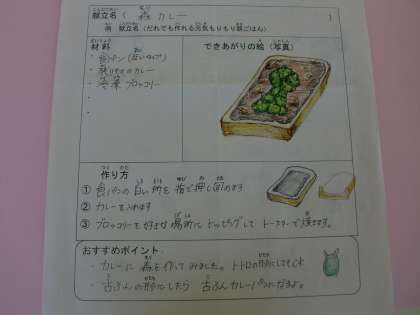 献立名( 森カレー )
例 献立名(だれでも作れる元気もりもり朝ごはん)
材料
できあがりの絵(写真)
・食パン(厚いタイプ)
・残りもののカレー
・冷凍ブロッコリー
・
・
作り方
① 食パンの白い所を指で押し固めます
② カレーを入れます
③ ブロッコリーを好きな場所にトッピングして トースターで焼きます。
おすすめポイント
・カレーに森を作ってみました。トトロの形にしてもOK
・古ふんの形にしたら 古ふんカレーパンになるよ。